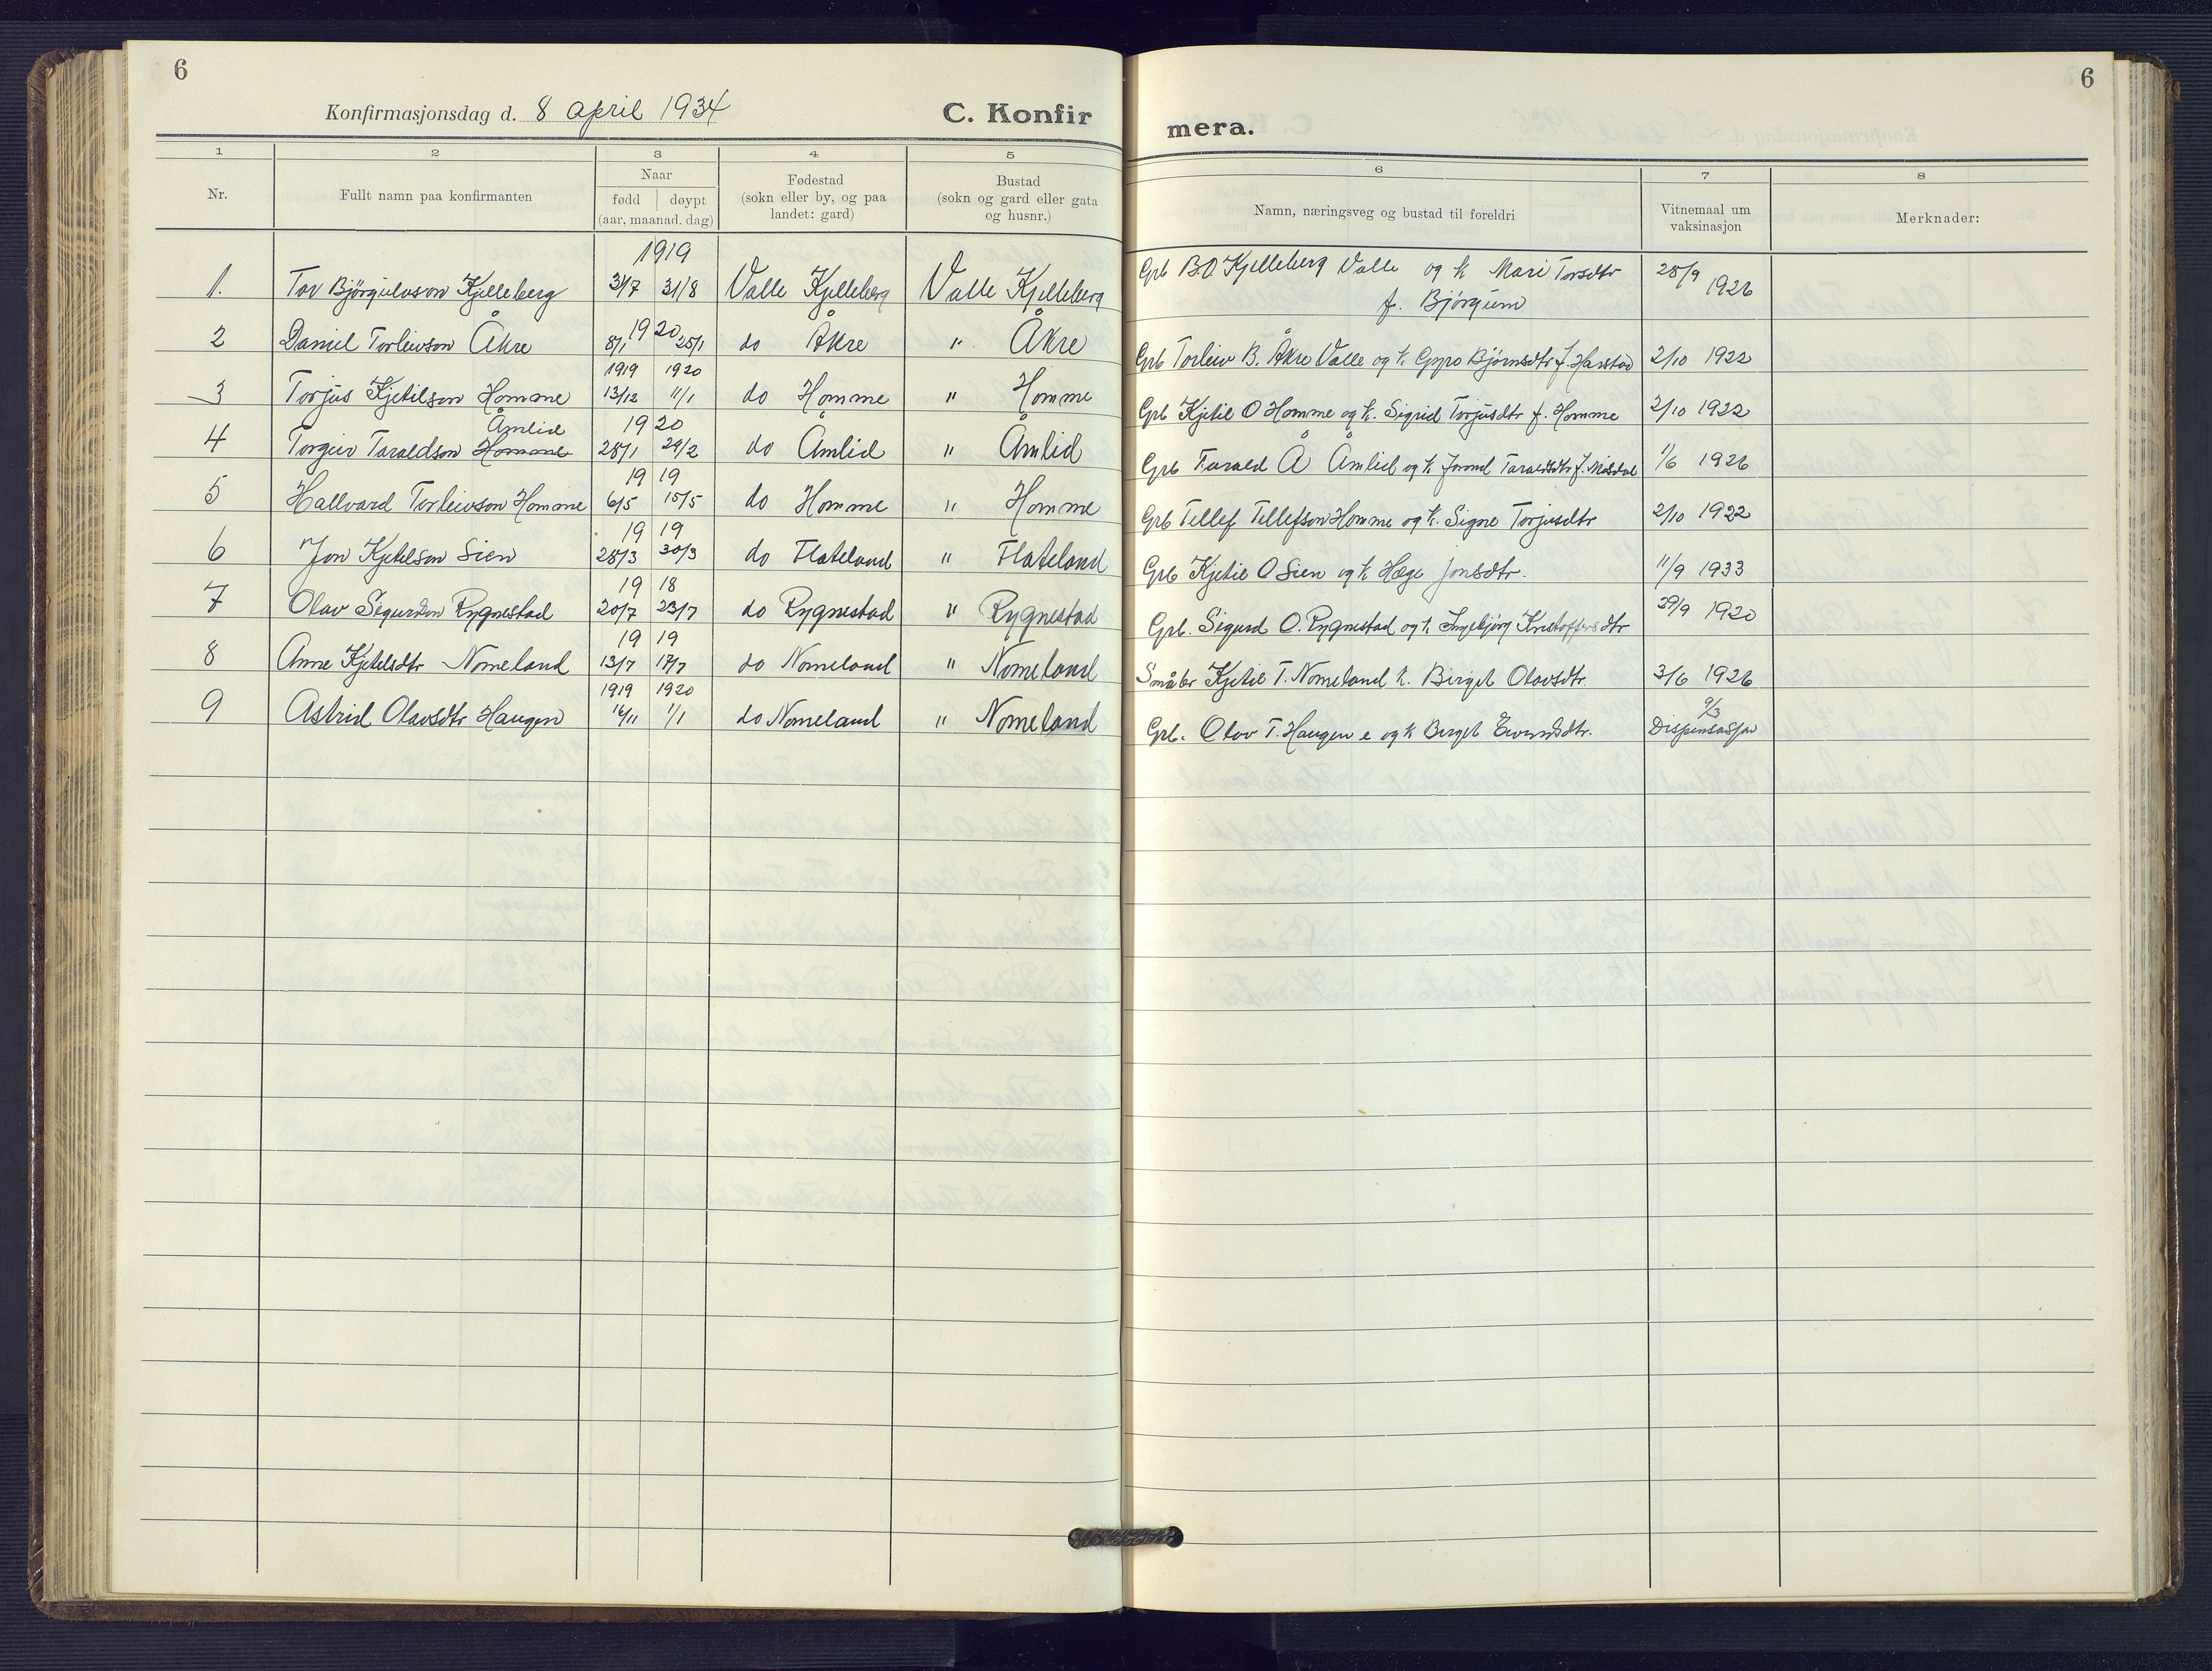 6
Konfirmasjonsdag d. 8 april 1934
C. Konfirmera.
6
1 2 3 4 5 6 7 8
Nr. Fullt namn paa konfirmanten Naar fødd døypt (aar, maanad. dag) Fødestad (sokn eller by, og paa landet: gard) Bustad (sokn og gard eller gata og husnr.) Namn, næringsveg og bustad til foreldri Vitnemaal um vaksinasjon Merknader:
1919
1. Tor Björgulvson Kjelleberg 31/7 31/8 Valle Kjelleberg Valle Kjelleberg Grb B.O. Kjelleberg Valle og k Mari Torsdtr f. Bjørgum 28/9 1926
1920
2 Daniel Torleivson Åkre 8/1 25/1 do Åkre " Åkre Grb Torleiv B. Åkre Valle og k. Gyro Bjørnsdtr f. Harstad 2/10 1922
1919 1920
3 Torjus Kjetilson Homme 13/12 11/1 do Homme " Homme Grb Kjetil O Homme og k. Sigrid Torjusdtr f. Homme 2/10 1922
Åmlid 1920
4 Torgeir Taraldson Homme 28/1 29/2 do Åmlid " Åmlid Grb Tarald Å Åmlid og k Jorond Taraldsdtr f. 1/6 1926
1919
5 Hallvard Torleivson Homme 6/5 15/5 do Homme " Homme Grb Tellef Tellefson Homme og k. Signe Torjusdtr 2/10 1922
1919
6 Jon Kjetilson Sien 28/3 30/3 do Flateland " Flateland Grb Kjetil O Sien og k Hæge Jonsdtr. 11/9 1933
1918
7 Olav Sigurdson Rygnestad 20/7 23/7 do Rygnestad " Rygnestad Grb. Sigurd O. Rygnestad og k Ingebjørg Kristoffersdtr 29/9 1920
1919
8 Anne Kjetilsdtr Nomeland 13/7 17/7 do Nomeland " Nomeland Småbr Kjetil T. Nomeland k. Birgit Olavsdtr. 3/6 1926
1919 1920
9 Astrid Olavsdtr Haugen 16/11 1/1 do Nomeland " Nomeland Grb. Olav T. Haugen e og k Birgit Eivindsdtr. 9/3 Dispensasjon